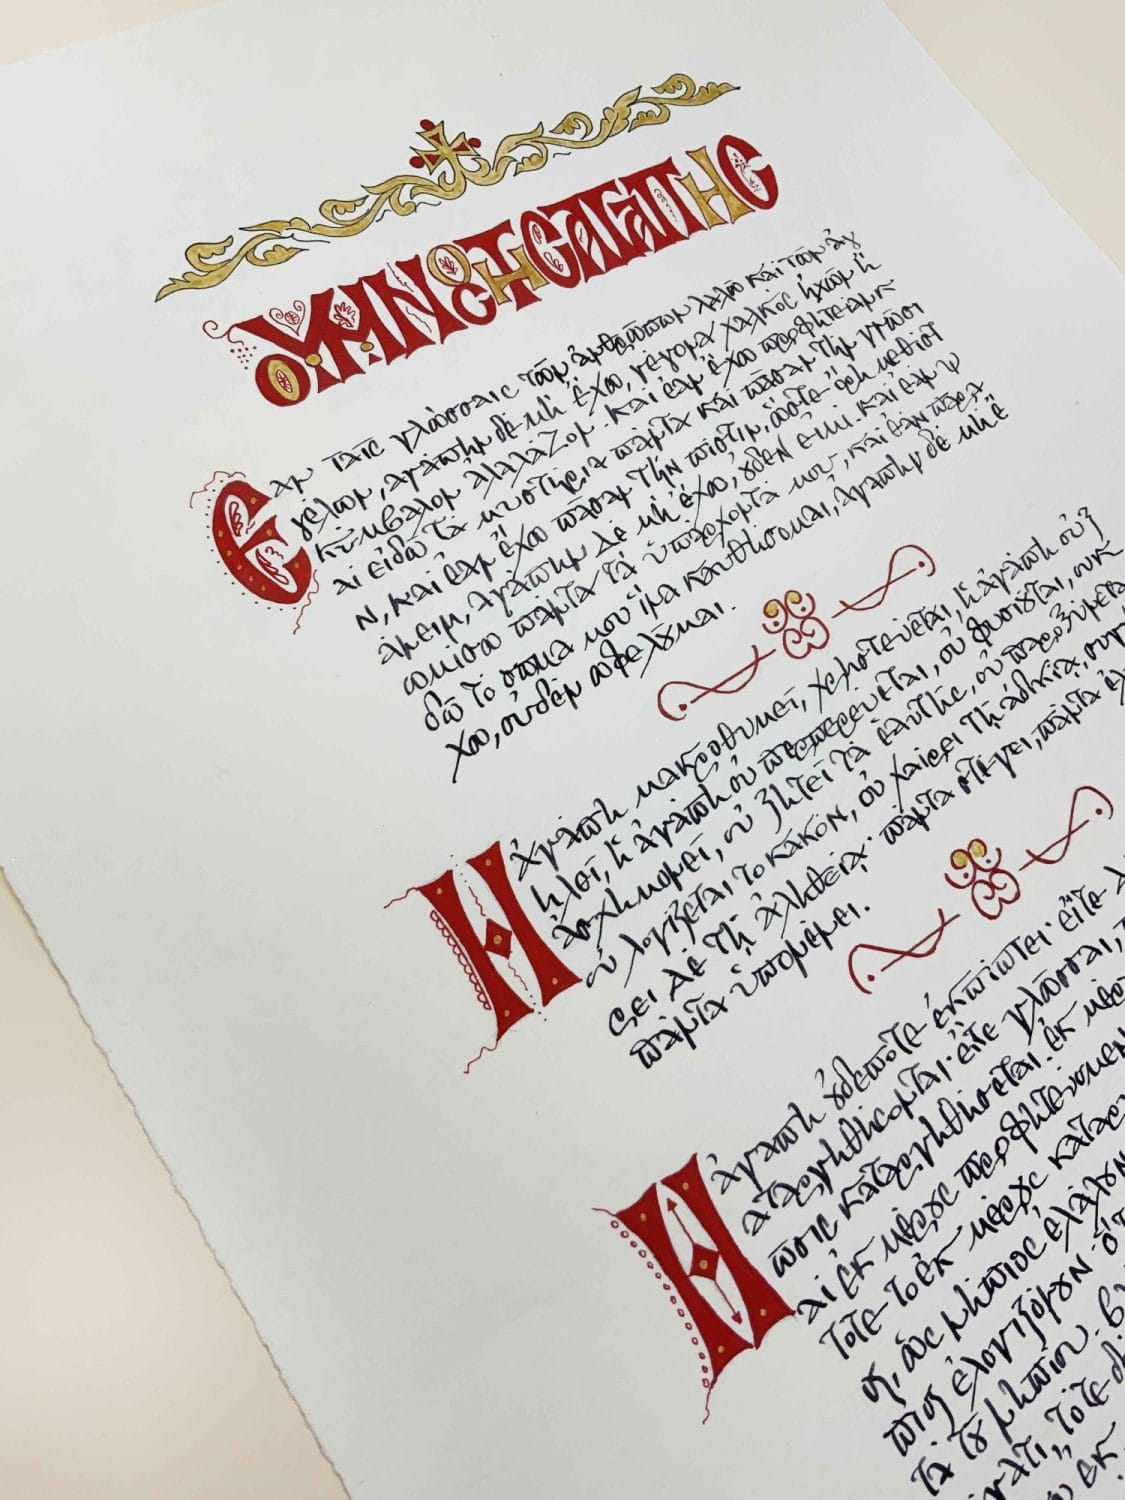 Ο ΥΜΝΟC ΤΗC ΑΓΑΠΗC
Εὰν ταῖς γλώσσαις τῶν ἀνθρώπων λαλῶ καὶ τῶν ἀγ
γέλων, ἀγάπην δὲ μὴ ἔχω, γέγονα χαλκὸς ἠχῶν ἢ
κύμβαλον ἀλαλάζον. καὶ ἐὰν ἔχω προφητείαν κ
αὶ εἰδῶ τὰ μυστήρια πάντα καὶ πᾶσαν τὴν γνῶσι
ν, καὶ ἐὰν ἔχω πᾶσαν τὴν πίστιν, ὥστε ὄρη μεθιστ
άνειν, ἀγάπην δὲ μὴ ἔχω, οὐδέν εἰμι. καὶ ἐὰν ψ
ωμίσω πάντα τὰ ὑπάρχοντά μου, καὶ ἐὰν παρα
δῶ τὸ σῶμα μου ἵνα καυθήσωμαι, ἀγάπην δὲ μὴ ἔ
χω, οὐδὲν ὠφελοῦμαι.
Η ἀγάπη μακροθυμεῖ, χρηστεύεται, ἡ ἀγάπη οὐ ζ
ηλοῖ, ἡ ἀγάπη οὐ περπερεύεται, οὐ φυσιοῦται, οὐκ
ἀσχημονεῖ, οὐ ζητεῖ τὰ ἑαυτῆς, οὐ παροξύνετα
οὐ λογίζεται τὸ κακόν, οὐ χαίρει τῇ ἀδικίᾳ, συγ
ρει δὲ τῇ ἀληθείᾳ· πάντα στέγει, πάντα ἐλ
πάντα ὑπομένει.
Η ἀγάπη οὐδέποτε ἐκπίπτει· εἴτε
αταργηθήσονται· εἴτε γλῶσσαι,
ῶσις καταργηθήσεται. ἐκ μέρο
αὶ ἐκ μέρους προφητεύομεν
τότε τὸ ἐκ μέρους καταργ
ος, ὡς νήπιος ἐλάλουν
πιος ἐλογιζόμην· ὅτ
τὰ τοῦ νηπίου. β
τι, τότε δὲ
ἐκ